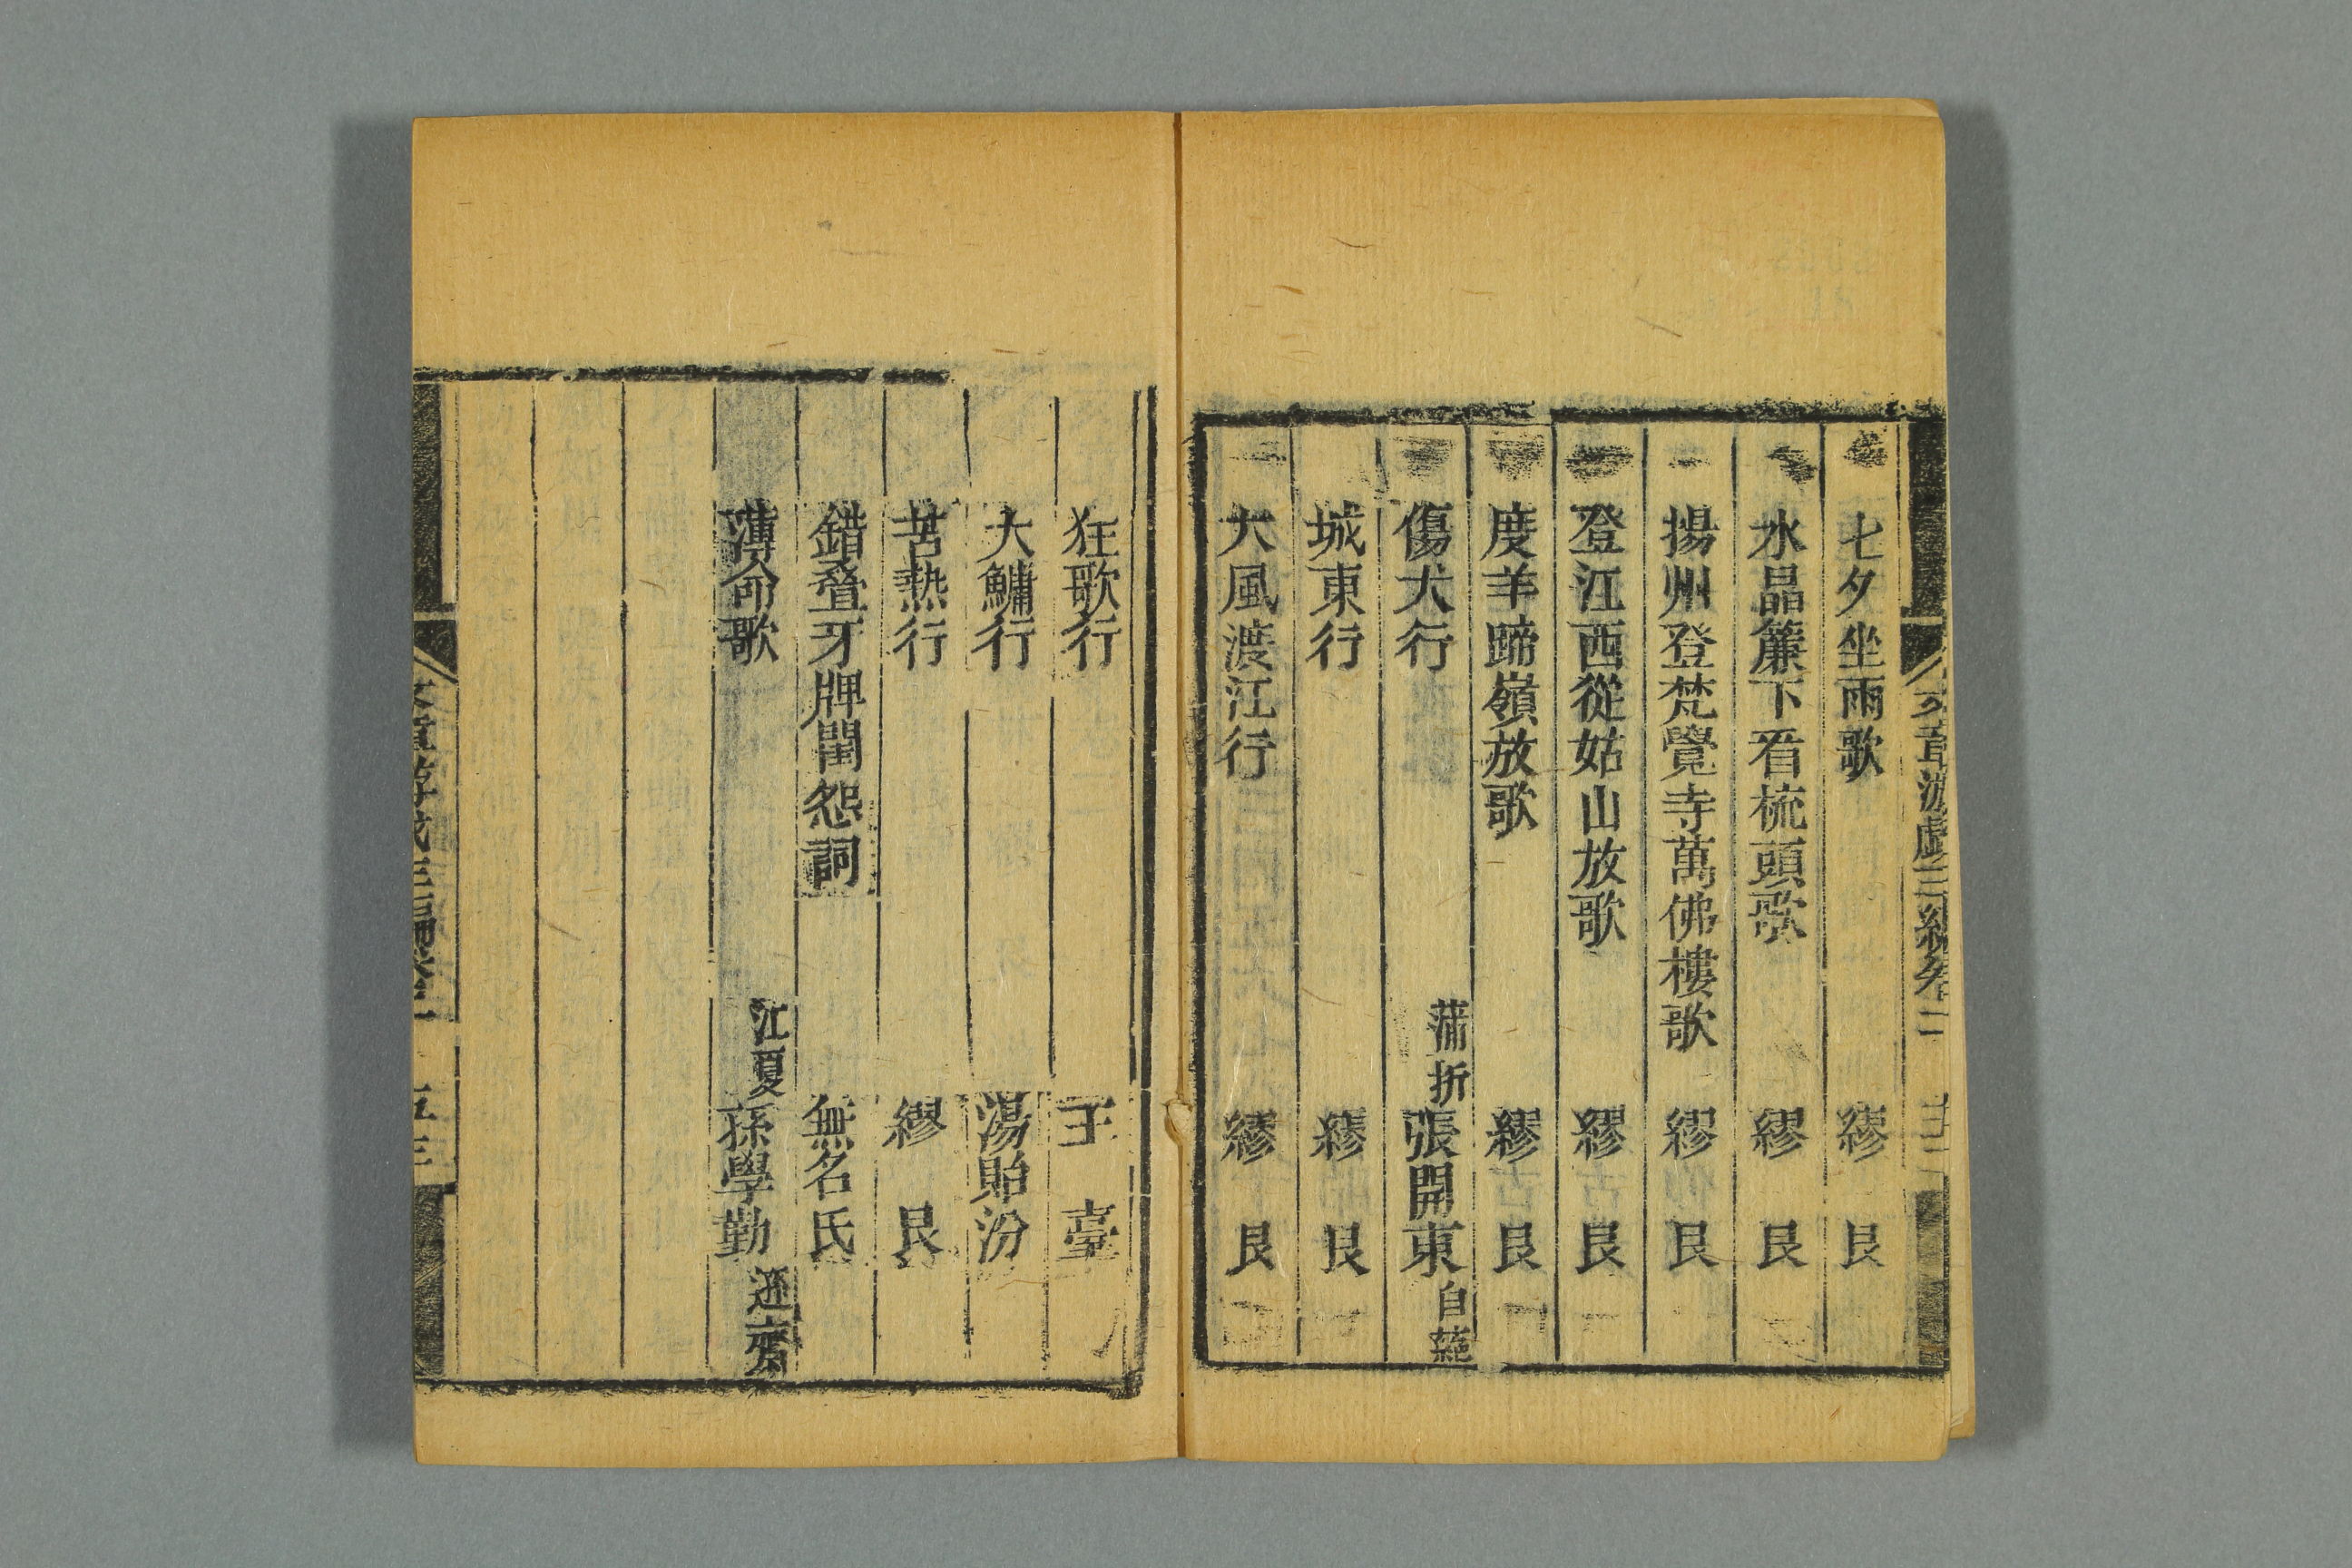 文章游戲三編卷二
七夕坐雨歌 繆艮
水晶簾下看梳頭歌 繆艮
揚州登梵覺寺萬佛樓歌 繆艮
登江西從姑山放歌 繆艮
度羊蹄嶺放歌 繆艮
傷犬行 蒲折張開東自蒓
城東行 繆艮
大風渡江行 繆艮
狂歌行 王臺
大鱅行 湯貽汾
苦熱行 繆艮
錯叠牙牌閨怨詞 無名氏
薄命歌 江夏孫學勤遜齋